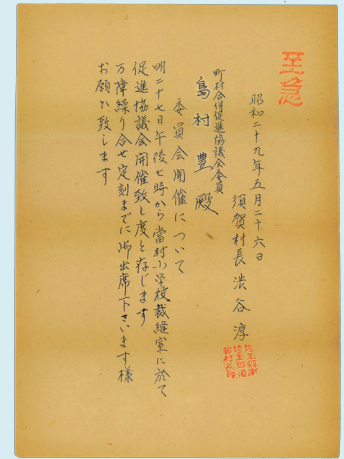 至急
昭和二十九年五月二十六日
須賀村長 渋谷淳
町村合併促進協議会委員
島村豊殿
委員会開催について
明二十七日午後七時から當村小学校裁縫室に於て
促進協議会開催致し度と存じます
万障繰り合せ定刻までに御出席下さいます様
お願い致します